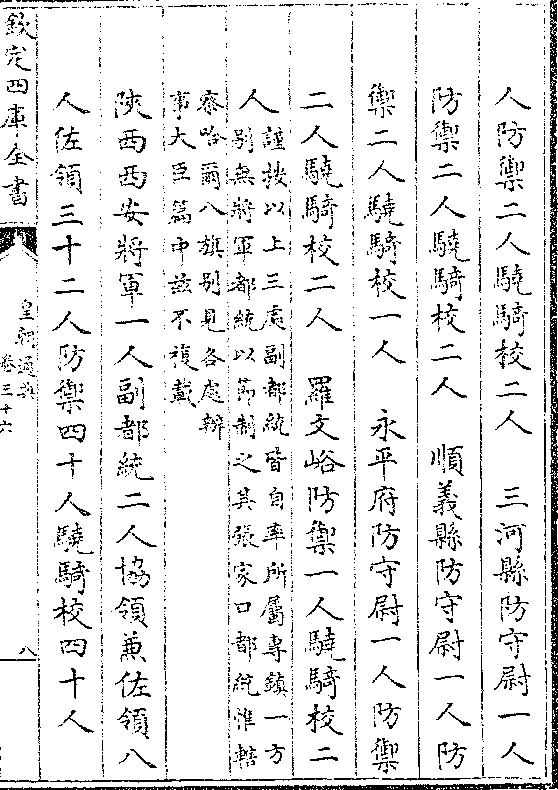 人防禦二人驍騎校二人　三河縣防守尉一人
防禦二人驍騎校二人　順義縣防守尉一人防
禦二人驍騎校一人　永平府防守尉一人防禦
二人驍騎校二人　羅文峪防禦一人驍騎校二
人
謹按以上三處副都統皆自率所屬專鎮一方
别無將軍都統以節制之其張家口都統惟轄
察哈爾八旗别見各處辦
事大臣篇中兹不複載
陝西西安將軍一人副都統二人協領兼佐領八
人佐領三十二人防禦四十人驍騎校四十人
欽定四庫全書
皇朝通典
卷三十六
八